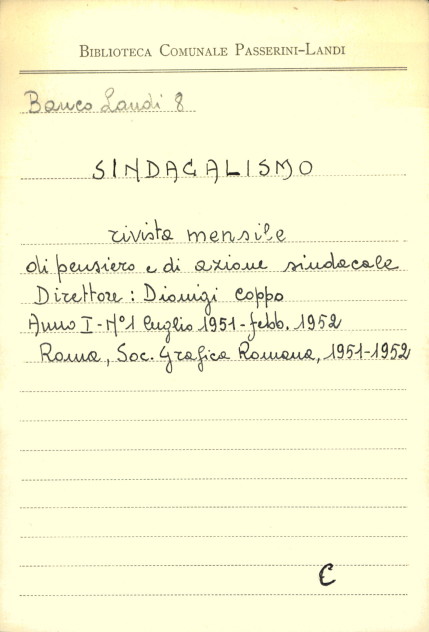 BIBLIOTECA COMUNALE PASSERINI-LANDI
Banco Landi 8
SINDACALISMO
rivista mensile
di pensiero e di azione sindacale
Direttore: Dionigi Coppo
Anno I-N°1 luglio 1951-febb. 1952
Roma, Soc. Grafica Romana, 1951-1952
C